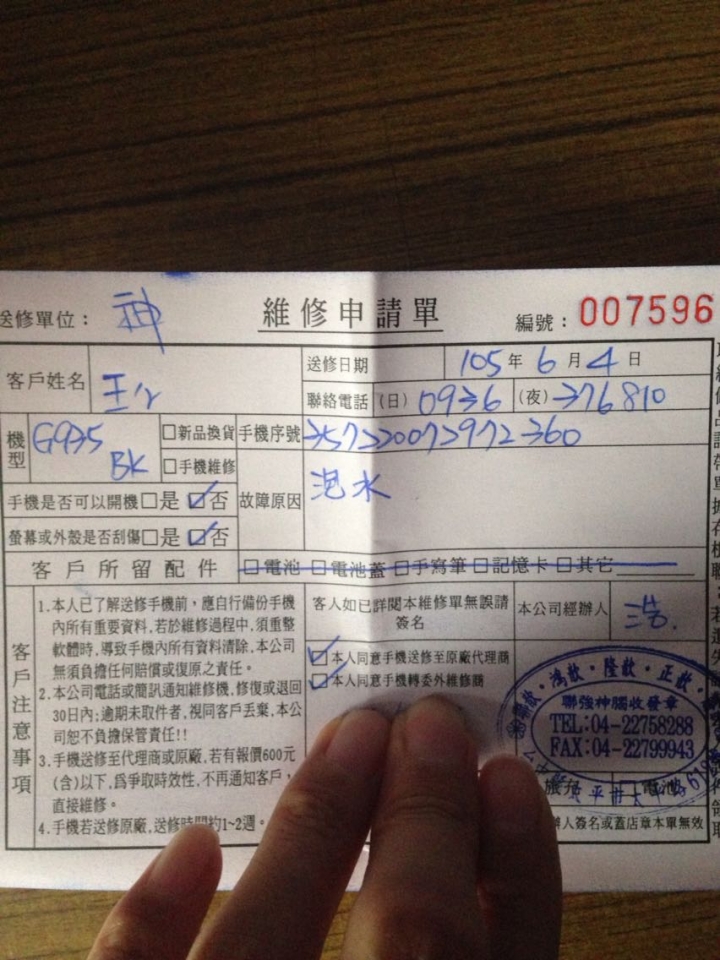 送修單位： 神 維修申請單 編號：007596
客戶姓名 王 送修日期 105年6月4日
聯絡電話 (日) 0936 (夜) 376810
機型 G935 BK □新品換貨 手機序號 357220072972360
□手機維修
手機是否可以開機□是☑否 故障原因 泡水
螢幕或外殼是否刮傷□是☑否
客戶所留配件 □電池 □電池蓋 □手寫筆 □記憶卡 □其它
客戶注意事項
1.本人已了解送修手機前，應自行備份手機
內所有重要資料，若於維修過程中，須重整
軟體時，導致手機內所有資料清除，本公司
無須負擔任何賠償或復原之責任。
2.本公司電話或簡訊通知維修機，修復或退回
30日內；逾期未取件者，視同客戶丟棄，本公
司恕不負擔保管責任!!
3.手機送修至代理商或原廠，若有報價600元
(含)以下，爲爭取時效性，不再通知客戶，
直接維修。
4.手機若送修原廠，送修時間約1~2週。
客人如已詳閱本維修單無誤請
簽名
本公司經辦人 浩
☑本人同意手機送修至原廠代理商
☑本人同意手機轉委外維修商
聯強神腦收發章
TEL:04-22758288
FAX:04-22799943
□電池
人簽名或蓋店章本單無效